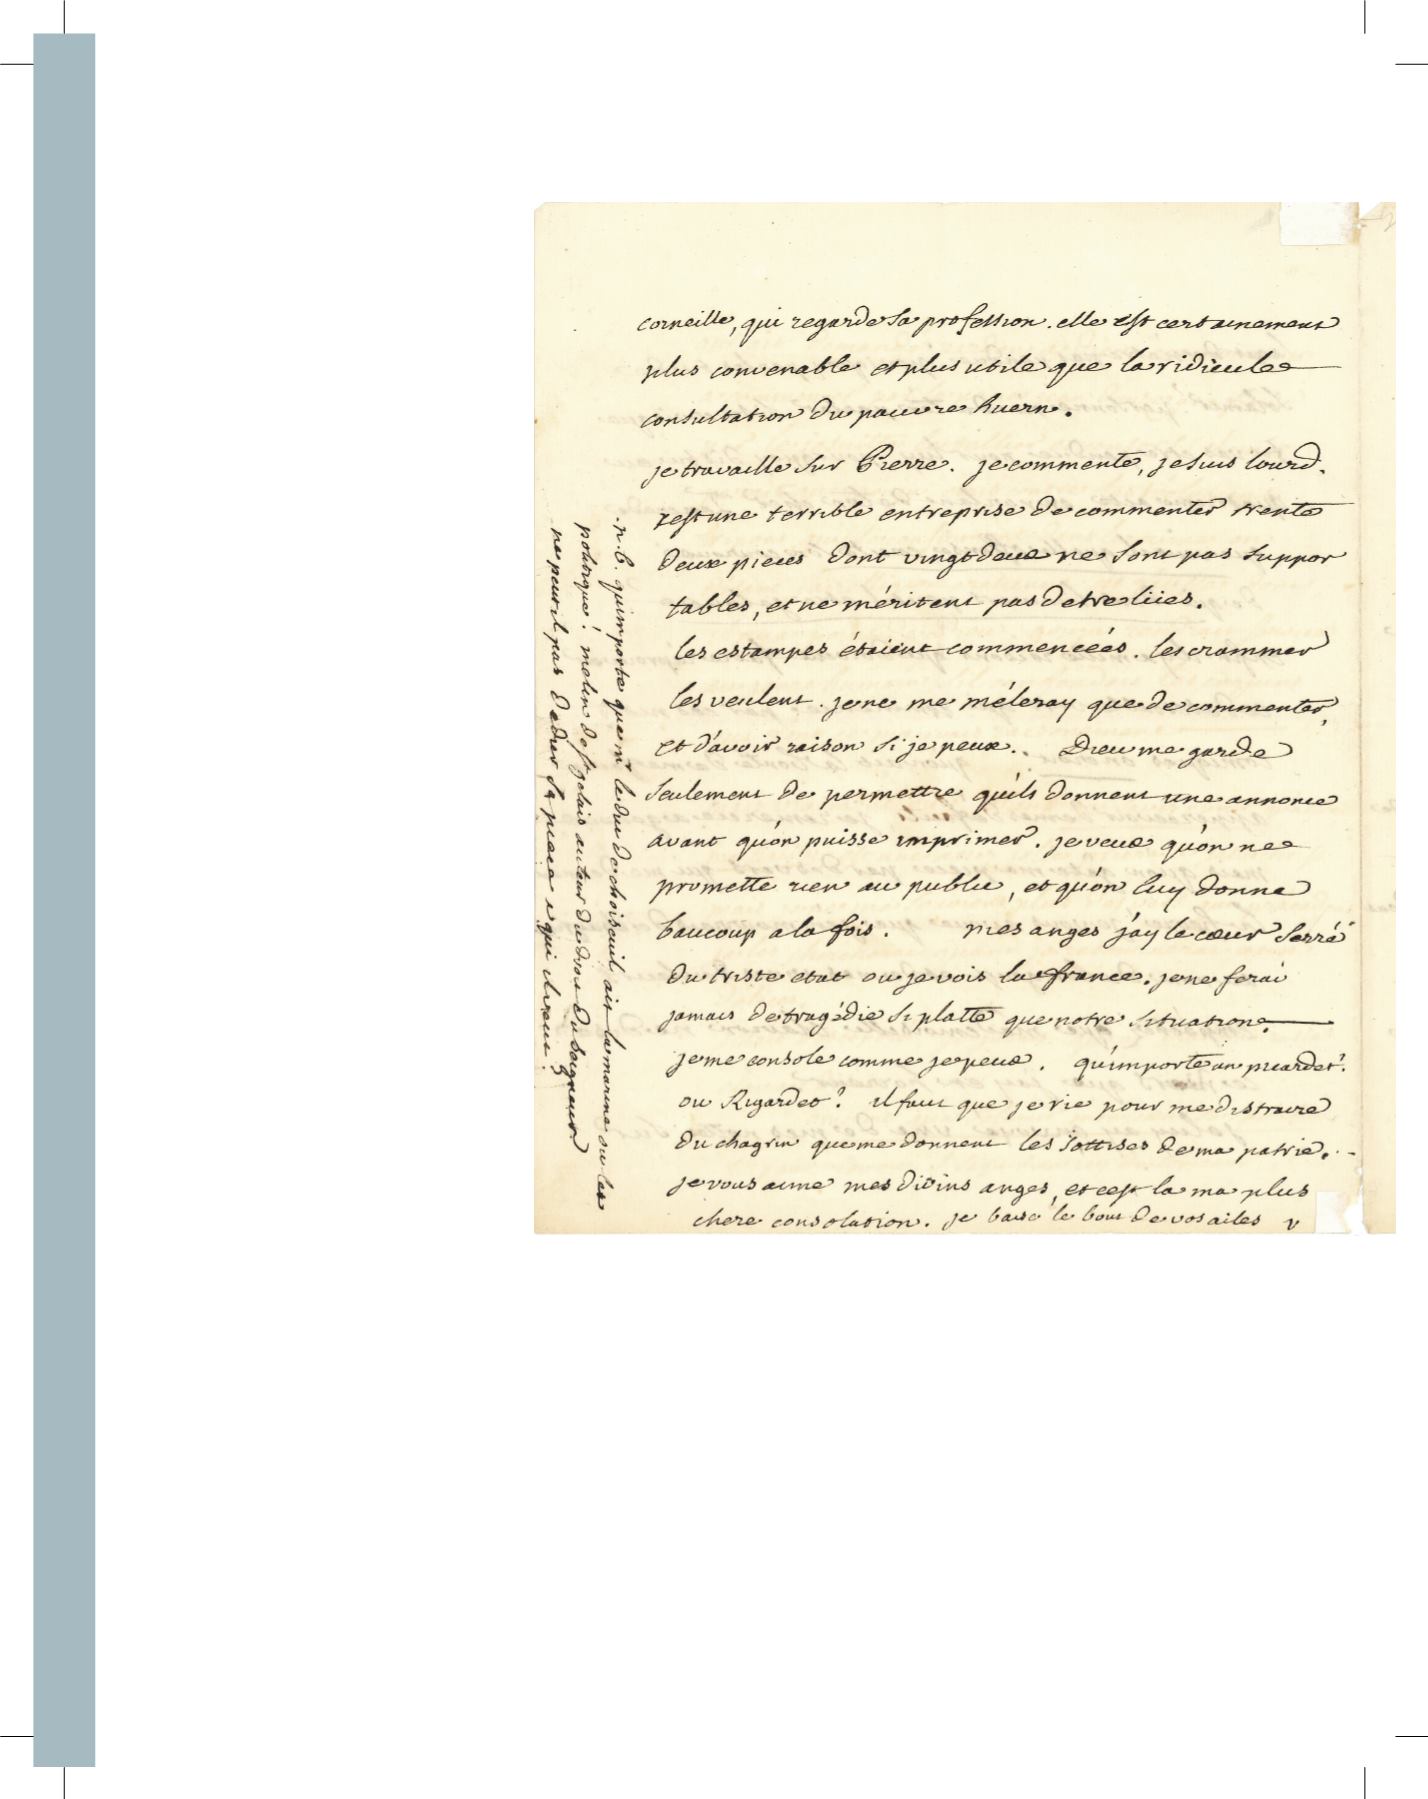 corneille, qui regarde sa profession. elle est certainement
plus convenable et plus utile que la ridicule
consultation du pauvre huern.
je travaille sur Pierre. je commente, je suis lourd.
cest une terrible entreprise de commenter trente
deux pieces dont vingt deux ne sont pas suppor
tables, et ne méritent pas detre lües.
les estampes étaient commencées. les crammer
les veulent. je ne me méleray que de commenter,
et d'avoir raison si je peux. Dieu me garde
seulement de permettre qu'ils donnent une annonce
avant qu'on puisse imprimer. je veux qu'on ne
promette rien au public, et qu'on luy donne
baucoup a la fois. mes anges j'ay le cœur serré
du triste etat ou je vois la france. je ne ferai
jamais de tragédie si platte que notre situation.
je me console comme je peux. qu'importe un picardet?
ou Rigardet? il faut que je rie pour me distraire
du chagrin que me donnent les sottises de ma patrie.
je vous aime mes divins anges, et cest la ma plus
chere consolation. je baise le bout de vos ailes V
n. b. quimporte que mr le duc de choiseuil ait la marine ou la
politique? melin de st gelais auteur du droit du seigneur
ne peut il pas dedier sa piece a qui il veut?